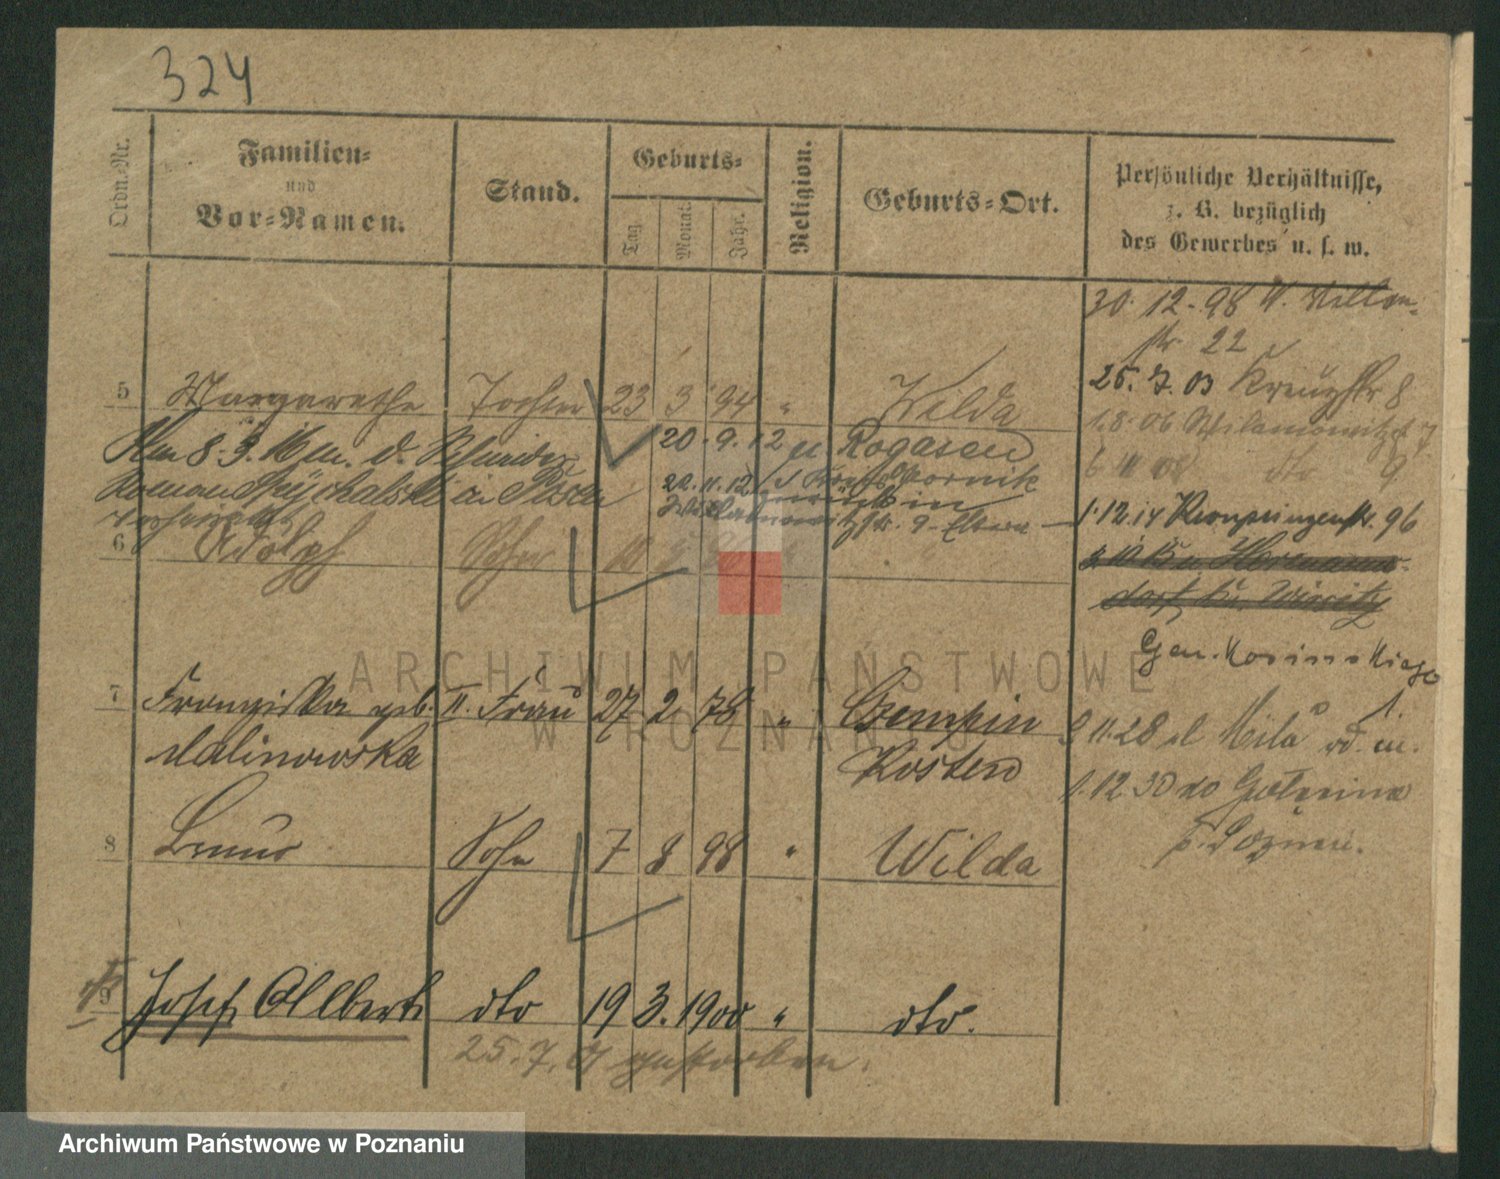 324
Ordn.-Nr.
Familien-
und
Vor-Namen.
Stand.
Geburts-
Tag.
Monat.
Jahr.
Religion.
Geburts-Ort.
Persönliche Verhältnisse,
z. B. bezüglich
des Gewerbes u. s. w.
30. 12. 98
str. 22
5 Margarethe Tochter 23 3 94 " Wilda
25. 7. 03 Kreuzstr 8
1.8.06 Wilamowitzstr 7
20. 9. 12 n Rogasen
dto 9
Roman Spychalski in Posen
22. 11. 12
Kornik
zurück in
9. Eltern
verheiratet
1.12.14 Kronprinzenstr. 96
6 Adolph Sohn 10
Gen. Kosinskiego
7 Franziska geb. II. Frau 27 2 78 " Czempin
Malinowska
Kosten
9.11.28
1.12.30 do
8 Bruno Sohn 7 8 98 " Wilda
p. Poznań.
9 Josef Albert dto 19 3. 1900 " dto.
25. 7. gestorben.
ARCHIWUM PAŃSTWOWE
W POZNANIU
Archiwum Państwowe w Poznaniu